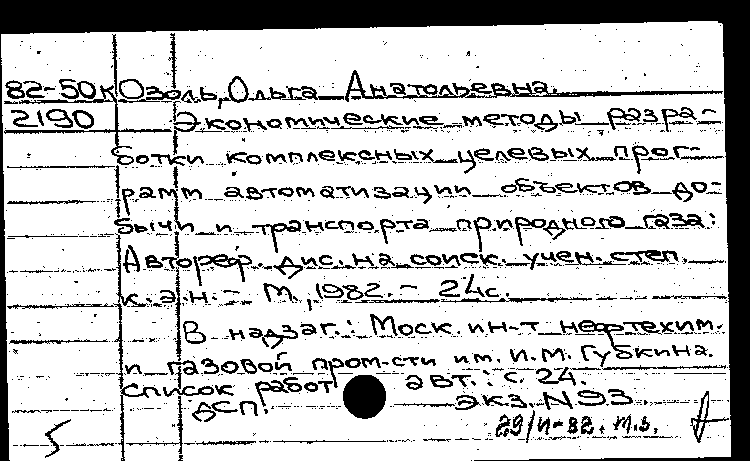 82-50к Озоль, Ольга Анатольевна.
2190 Экономические методы разра-
ботки комплексных целевых прог-
рамм автоматизации объектов до-
бычи и транспорта природного газа:
Автореф. дис. на соиск. учен. степ.
к.э.н. - М., 1982. - 24с.
В надзаг.: Моск. ин-т нефтехим.
и газовой пром-сти им. И.М. Губкина.
Список работ авт.: с. 24.
ДСП. экз. N 93.
29/IV-82. т.з.